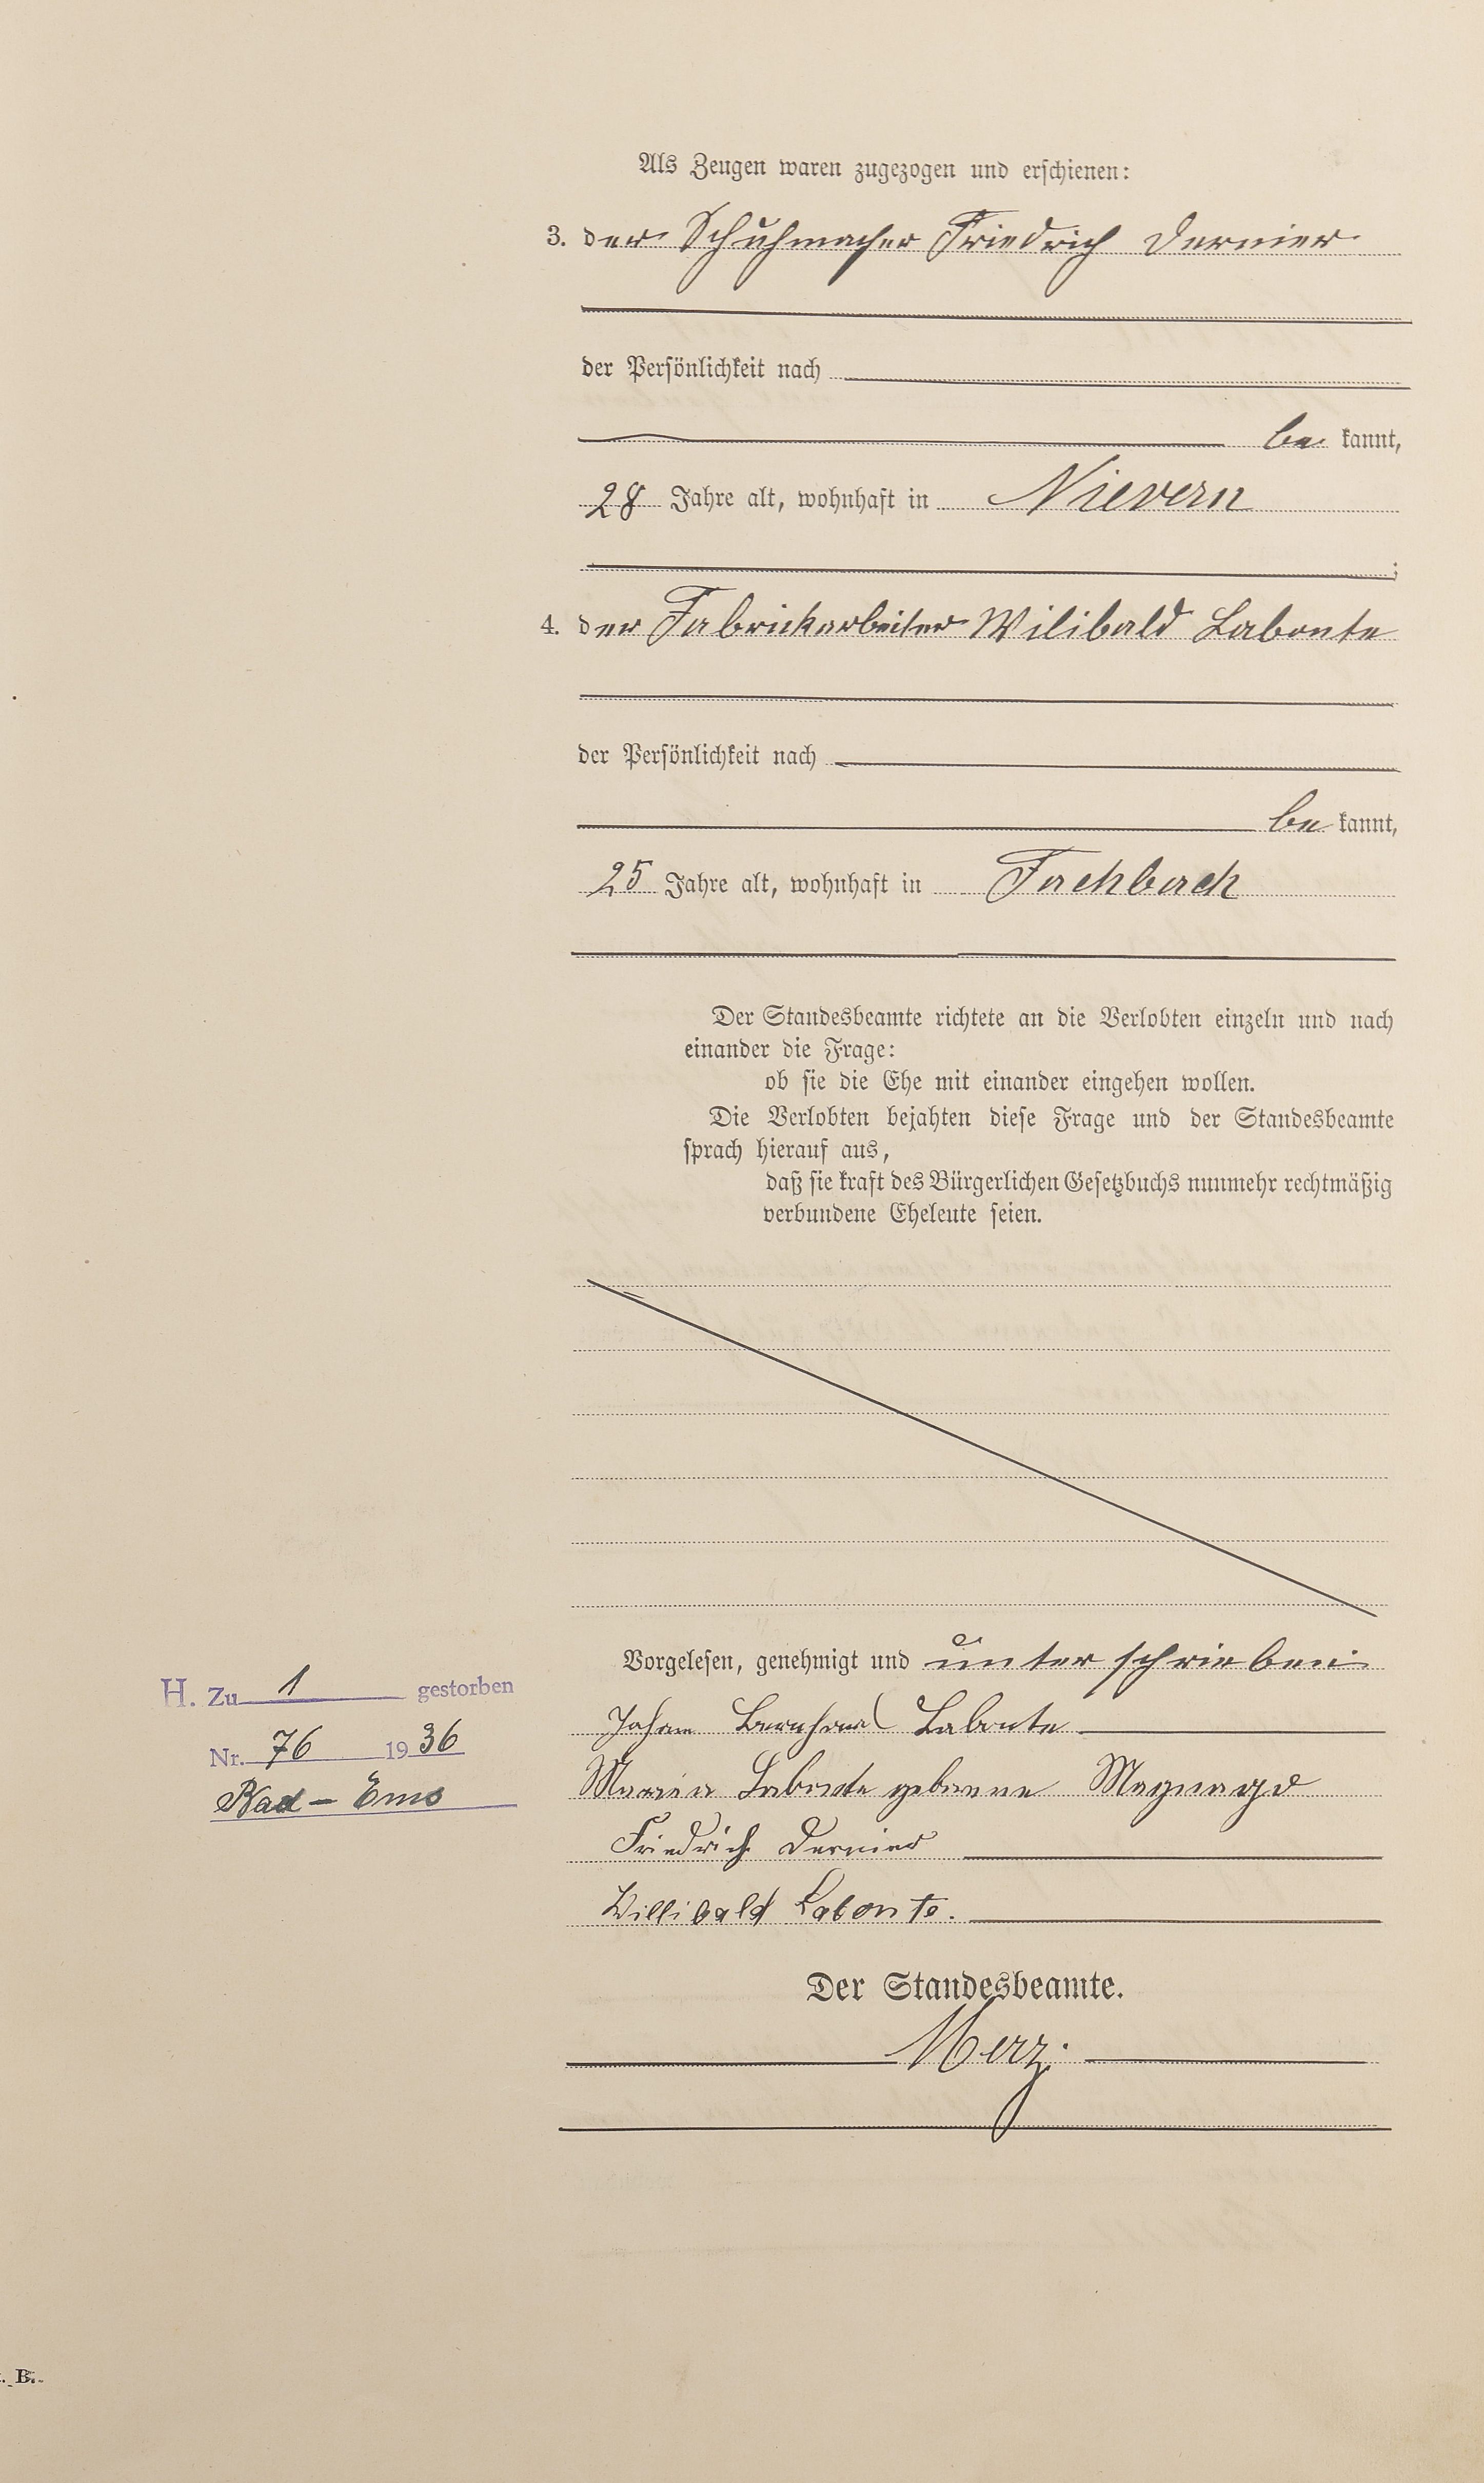 Als Zeugen waren zugezogen und erschienen:
3. der Schuhmacher Friedrich Dernier
der Persönlichkeit nach
be kannt,
28 Jahre alt, wohnhaft in Nievern
;
4. der Fabrickarbeiter Wilibald Labonte
der Persönlichkeit nach
be kannt,
25 Jahre alt, wohnhaft in Fachbach
Der Standesbeamte richtete an die Verlobten einzeln und nach
einander die Frage:
ob sie die Ehe mit einander eingehen wollen.
Die Verlobten bejahten diese Frage und der Standesbeamte
sprach hierauf aus,
daß sie kraft des Bürgerlichen Gesetzbuchs nunmehr rechtmäßig
verbundene Eheleute seien.
Vorgelesen, genehmigt und unterschrieben
Johann Bernhard Labonte
Maria Labonte geborene Magnago
Friedrich Dernier
Willibald Labonte.
Der Standesbeamte.
Merz.
H. Zu 1 gestorben
Nr. 76 1936
Bad - Ems
. B.